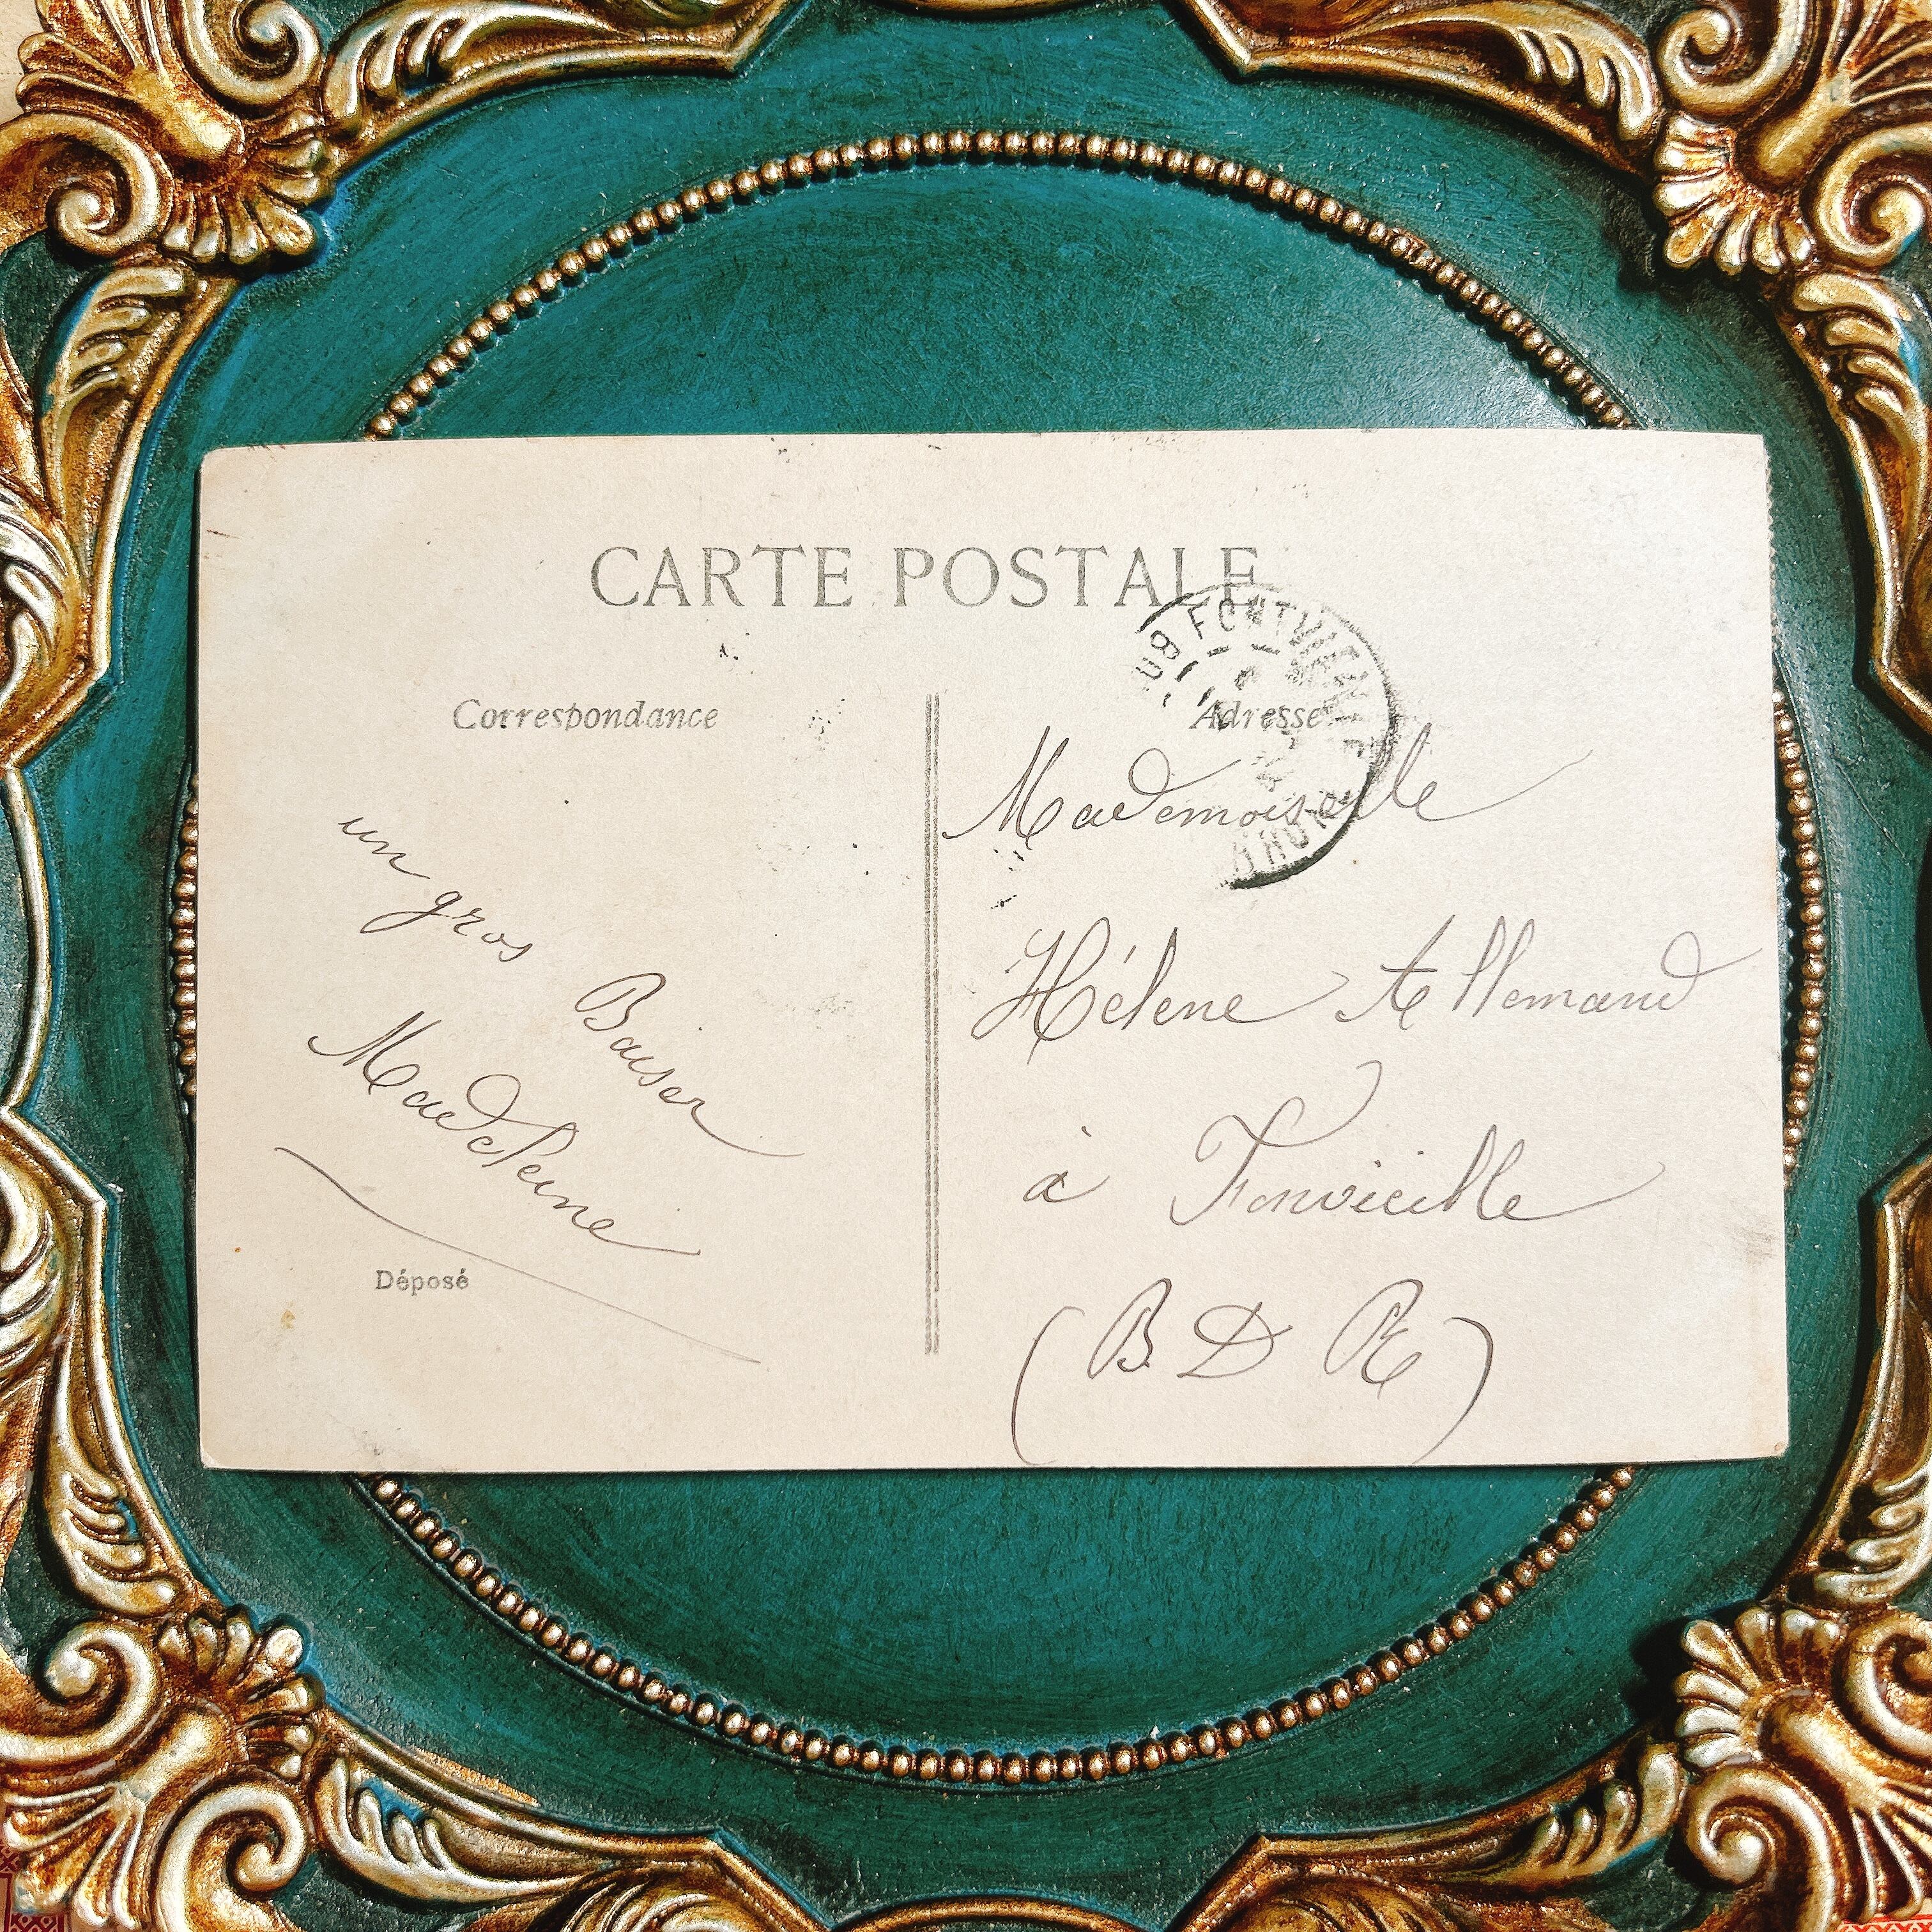 CARTE POSTALE
FONTVIEILLE
Correspondance
Adresse
un gros Baiser
Madeleine
Déposé
Mademoiselle
Hélene Allemand
à Fonvieille
(B D R)